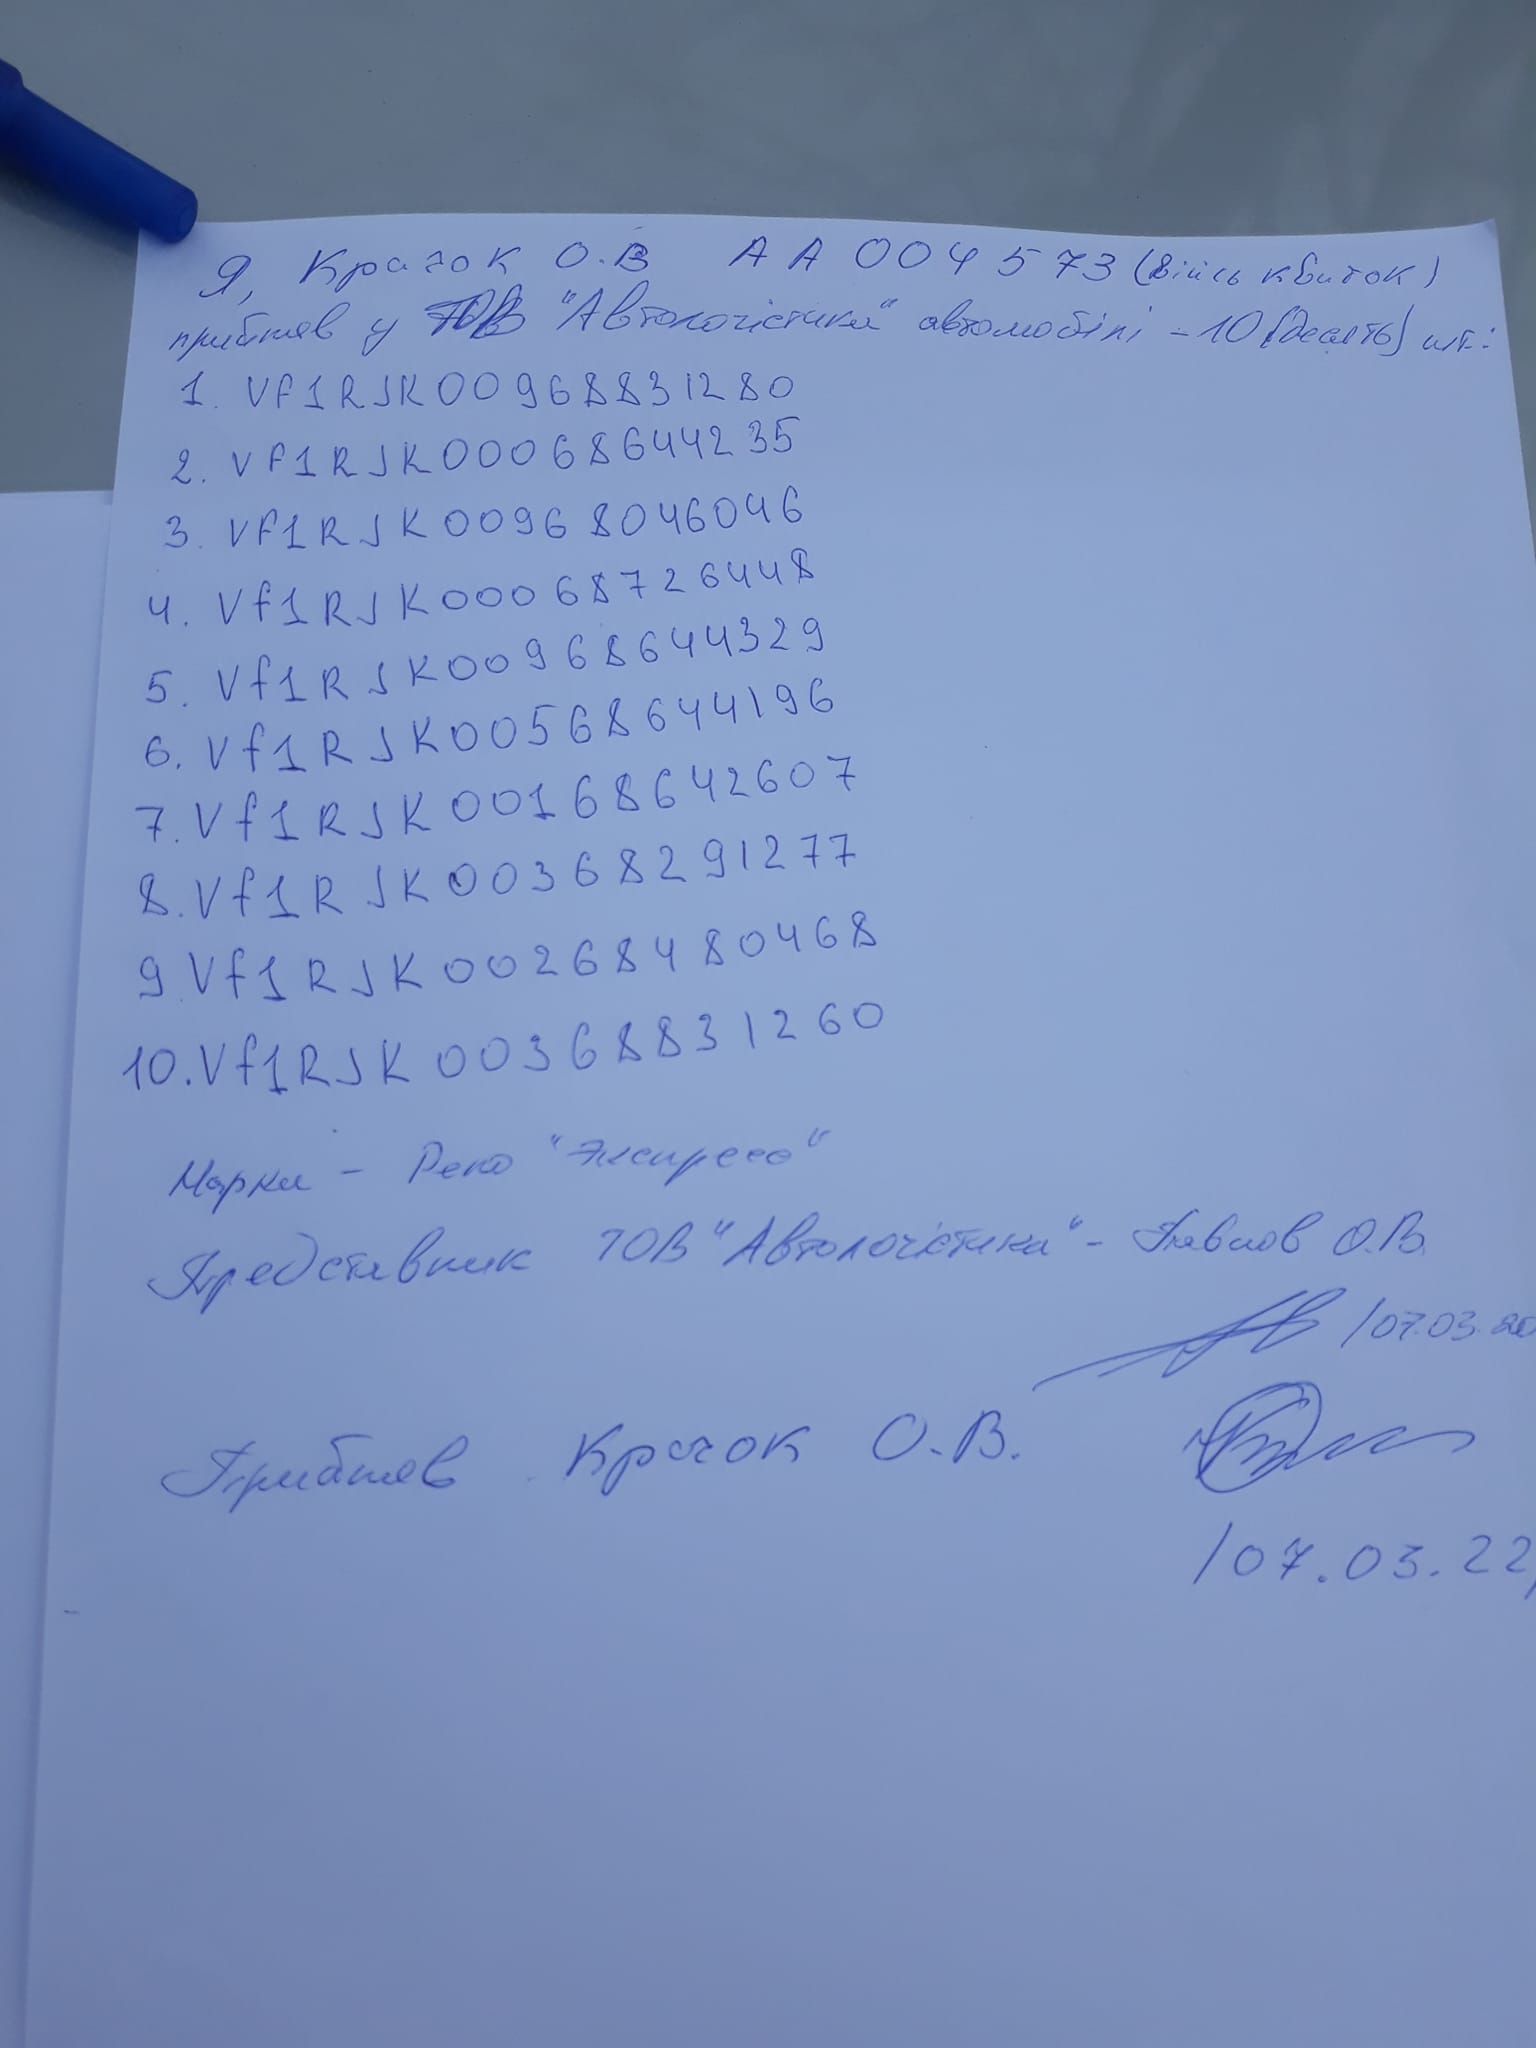 Я, Крачок О.В АА 004573 (Військ квиток)
прийняв у ТОВ "Автологістика" автомобілі - 10 (десять) шт:
1. Vf1RJK00968831280
2. Vf1RJK00068644235
3. Vf1RJK00968046046
4. Vf1RJK00068726448
5. Vf1RJK00968644329
6. Vf1RJK00568644196
7. Vf1RJK00168642607
8. Vf1RJK00368291277
9. Vf1RJK00268480468
10. Vf1RJK00368831260
Марки - Рено "Экспресс"
Представник ТОВ "Автологістика" - Павлов О.В.
/07.03.20
Прийняв Крачок О.В.
/07.03.22/